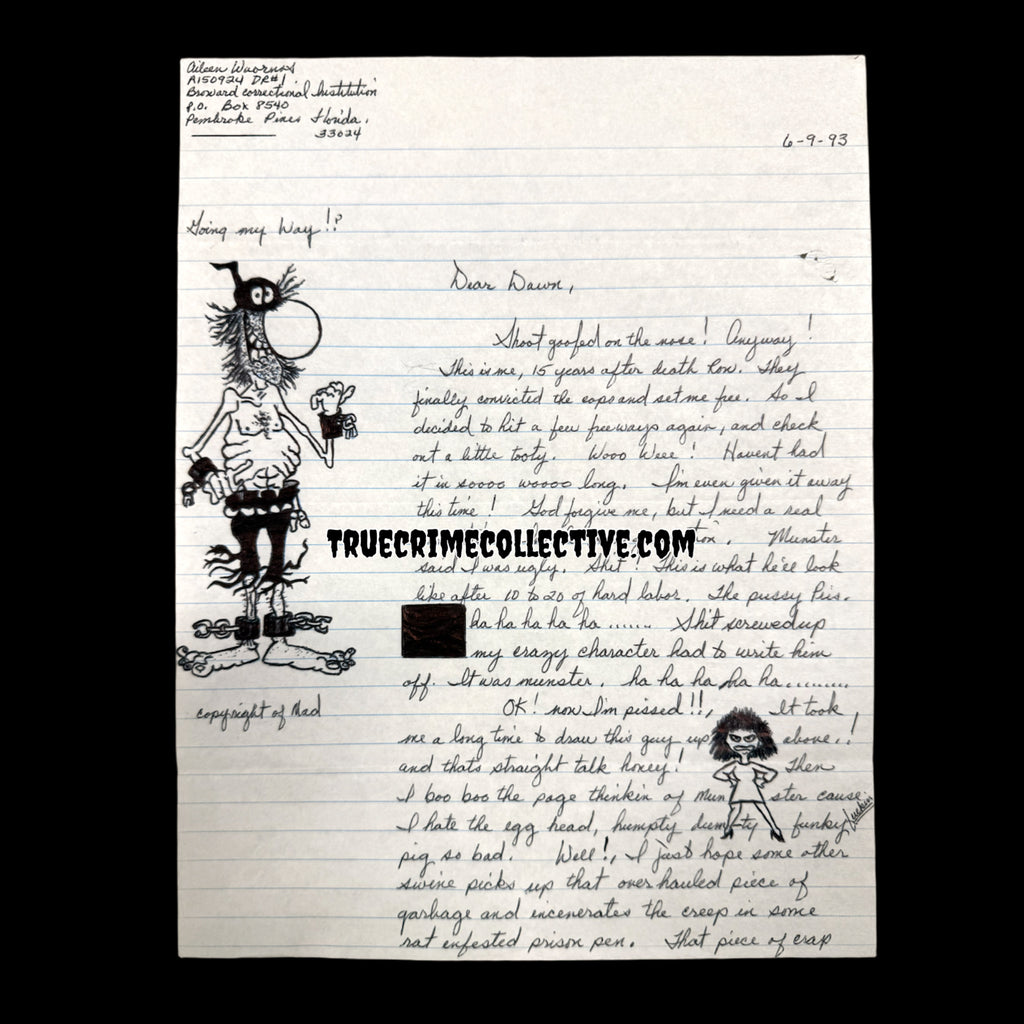 Aileen Wuornos
A150924 DR#1
Broward correctional Institution
P.O. Box 8540
Pembroke Pines Florida.
33024
6-9-93
Going my Way!?
Dear Dawn,
Shoot goofed on the nose! Anyway!
This is me, 15 years after death Row. They
finally convicted the cops and set me free. So I
decided to hit a few freeways again, and check
out a little tooty. Wooo Weee! Havent had
it in soooo woooo long. I'm even given it away
this time! God forgive me, but I need a real
TRUECRIMECOLLECTIVE.COM
Munster
said I was ugly. Shit! This is what he'll look
like after 10 to 20 of hard labor. The pussy Puis.
ha ha ha ha ha ...... Shit screwed up
my crazy character had to write him
off. It was munster. ha ha ha ha ha..........
copyright of Mad
OK! now I'm pissed!!, It took
me a long time to draw this guy up above..!
and thats straight talk honey! Then
I boo boo the page thinkin of Munster cause
I hate the egg head, humpty dumpty funky
pig so bad. Well!, I just hope some other
swine picks up that over hauled piece of
garbage and incenerates the creep in some
rat enfested prison pen. That piece of crap